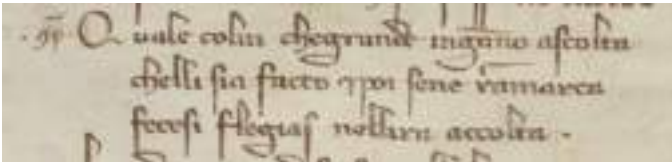 Quale colui che grande inganno ascolta
che lli sia facto 7 poi sene ramarca
fecesi flegias nellira accolta.